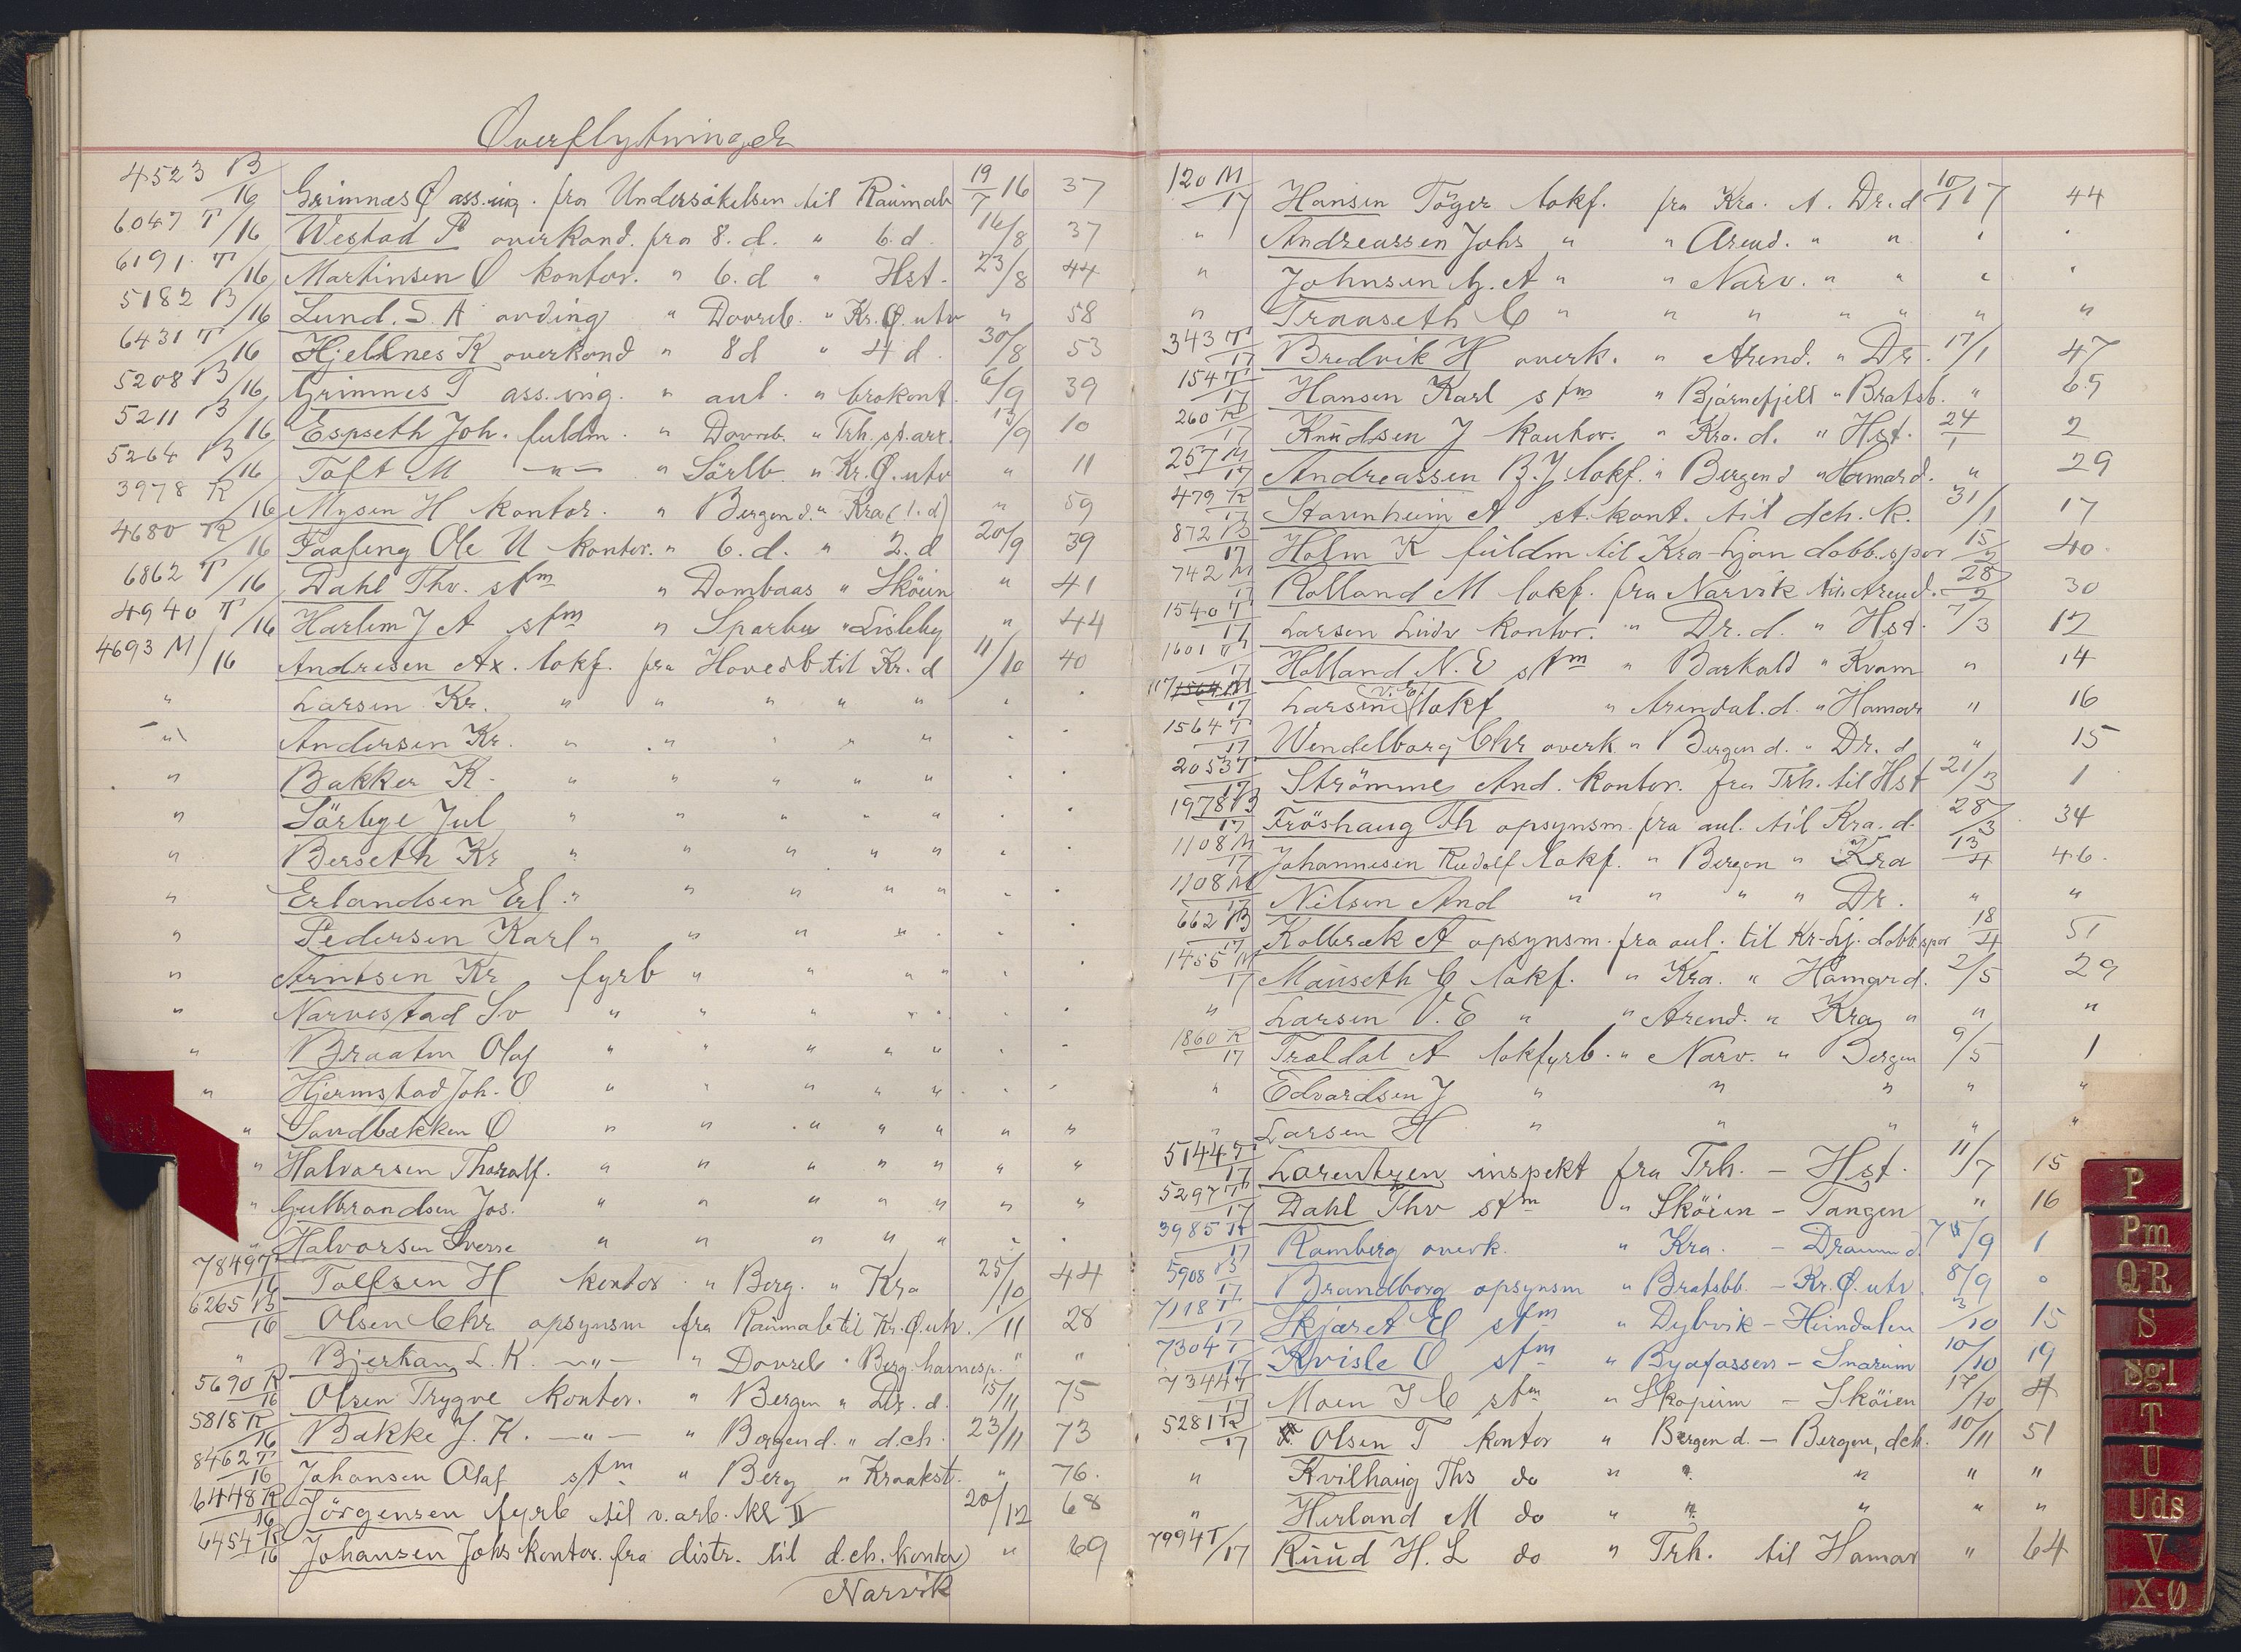 Overflytninger
4523 B/16 Grimnes Ø ass.ing. fra Undersøkelsen til Raumab 19/7 16 37
6047 T/16 Westad P overkond. fra 8. d. " 6. d. 16/8 37
6191 T/16 Martinsen O kontor. " 6. d " Hst. 23/8 44
5182 B/16 Lund. S. A avding " Dovreb. " Kr. Ø. utv " 58
6431 T/16 Hjellnes K overkond " 8 d " 4 d. 30/8 53
5208 B/16 Grimnes T ass. ing. " anl. " brokont. 6/9 39
5211 B/16 Espseth Joh. fuldm. " Dovreb. " Trh. st. arr. 13/9 10
5264 B/16 Toft M —"— " Sörlb. " Kr. Ø. utv " 11
3978 R/16 Mysen H kontor. " Bergen d. " Kra (1. d) " 59
4680 R/16 Faafeng Ole U kontor. " 6. d. " 2. d 20/9 39
6862 T/16 Dahl Thv. stm " Dombaas " Sköien " 41
4940 T/16 Harlem J A stm " Sparbu " Lisleby " 44
4693 M/16 Andresen Ax. lokf. fra Hovedb til Kr. d 11/10 40
" Larsen Kr. " " " " " " "
" Andersen Kr. " " " " " " "
" Bakken K. " " " " " " "
" Sörbye Jul " " " " " " "
" Berseth Kr " " " " " " "
" Erlandsen Erl. " " " " " " "
" Pedersen Karl " " " " " " "
" Arntsen Kr fyrb " " " " " "
" Narvestad Sv " " " " " " "
" Braaten Olaf " " " " " " "
" Hjermstad Joh. O " " " " " " "
" Sandbækken O " " " " " " "
" Halvorsen Thoralf. " " " " " " "
" Gulbrandsen Jos. " " " " " " "
" Halvorsen Sverre " " " " " " "
7849 T/16 Tollefsen H kontor " Berg. " Kra 25/10 44
6265 B/16 Olsen Chr opsynsm fra Raumab til Kr. Ø. utv. /11 28
" Bjerkan L. K. —"— " Dovreb " Berg. havnesp. " "
5690 R/16 Olsen Trygve kontor. " Bergen " Dr. d. 15/11 75
5818 R/16 Bakke J. K. —"— " Bergen d. " d.ch. 23/11 73
8462 T/16 Johansen Olaf stm " Berg " Kraakst. " 76.
6448 R/16 Jörgensen fyrb til v. arb. Kl II 20/12 68
6454 R/16 Johansen Johs kontor. fra distr. til d.ch. kontor) " 69
Narvik
120 M/17 Hansen Töger lokf. fra Kra. A. Dr. d 10/1 17 44
" Andreassen Johs " " Arend. " " " "
" Johnsen G. A " " Narv. " " " "
" Traaseth C " " " " " " "
343 T/17 Bredvik H overk. " Arend. " Dr. 17/1 47
154 T/17 Hansen Karl stm " Björnefjell " Bratsb. " 65
260 R/17 Knudsen J kontor. " Kra. d. " Hst. 24/1 2
257 M/17 Andreassen B. J. lokf. " Bergen d " Hamar d. " 29
479 R/17 Stavnheim A st. kont. til dch. K. 31/1 17
872 B/17 Holm K fuldm til Kra-Ljan dobb. spor 15/2 40.
742 M/17 Rolland M lokf. fra Narvik til Arend. 28/2 30
1540 T/17 Larsen Ludv kontor. " Dr. d. " Hst. 7/3 12
1601 T/17 Holland N. E stm " Barkald " Kvam " 14
117 1564 M/17 Larsen V. E. lokf " Arendal. d. " Hamar " 16
1564 T/17 Wendelborg Chr overk " Bergen d. " Dr. d " 15
2053 T/17 Strömme And. kontor. fra Trh. til Hst 21/3 1
1978 B/17 Fröshaug Th opsynsm. fra anl. til Kra. d. 28/3 34
1108 M/17 Johannesen Rudolf lokf. " Bergen " Kra 13/4 46.
1108 M/17 Nilsen And " " " " Dr. " "
662 B/17 Kolbræk A opsynsm. fra anl. til Kr-Lj. dobb. spor 18/4 51
1455 M/17 Mauseth G lokf. " Kra. " Hamar d. 2/5 29
" Larsen V. E " " Arend. " Kra " " "
1860 R/17 Troldal A lokfyrb. " Narv. " Bergen 9/5 1
" Edvardsen J " " " " "
" Larsen H " " " " "
5144 T/17 Lorentzen inspekt fra Trh. – Hst. 11/7 15
5297 T/17 Dahl Thv stm " Sköien – Tangen " 16
3985 R/17 Ramberg overk. " Kra. – Dramm d. /9 1
5908 B/17 Brandborg opsynsm " Bratsbb. – Kr. Ø. utv. 8/9 "
7118 T/17 Skjæret E stm " Dybvik – Heindalen 3/10 15
7304 T/17 Kvisle O stm " Byafossen – Snarum 10/10 19
7344 T/17 Moen J C stm " Skopum – Sköien 17/10 4
5281 R/17 Olsen T kontor " Bergen d. – Bergen, dch. 10/11 51
" Kvilhaug Ths do " " " " "
" Herland M do " " " " "
7994 T/17 Ruud H. L do " Trh. til Hamar " 64
P
Pm
Q-R
S
Sgl
T
U
Uds
V
X-Ø